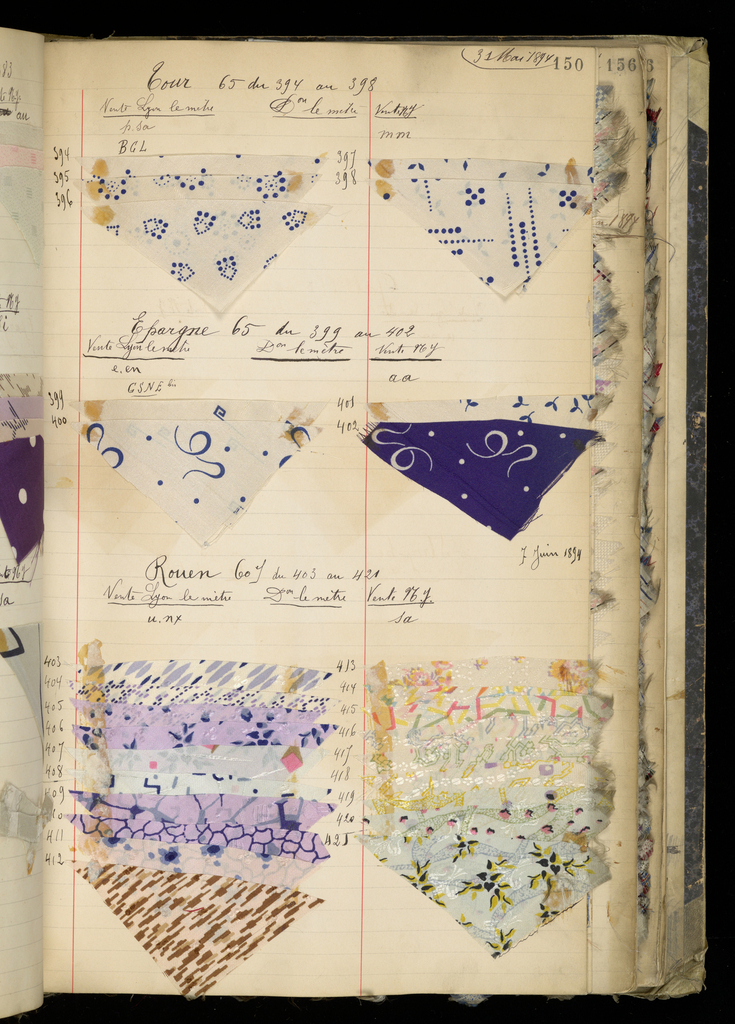 31 Mai 1894 150 156
Tour 65 du 394 au 398
Vente Lyon le mètre Don le metre Vente N.Y
p.sa mm
BGL
394 397
395 398
396
Epargne 65 du 399 au 402
Vente Lyon le metre Don le mètre Vente N.Y
e.en aa
GSNE bis
399 401
400 402
7 Juin 1894
Rouen 60 du 403 au 421
Vente Lyon le mètre Don le metre Vente N.Y
u.nx sa
403 413
404 414
405 415
406 416
407 417
408 418
409 419
410 420
411 421
412
83
au
sa
1894